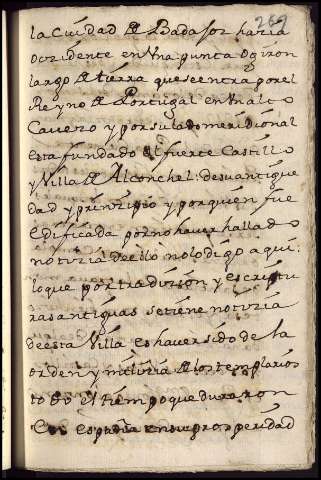 269
la Ciudad de Badajoz hazia
ocçidente en vna punta o giron
largo de tierra que se entra por el
Reyno de Portugal en vn alto
Cavezo y por su lado meridional
esta fundado el fuerte Castillo
y Villa de Alconchel. de su antigue
dad y prinzipio y por quien fue
edificada por no haver hallado
notizia de ello no lo digo aqui
lo que por tradizion y escriptu
ras antiguas se tiene notizia
de esta Villa es haver sido de la
orden y milizia de los templarios
todo el tiempo que duraron
en españa en su prosperidad